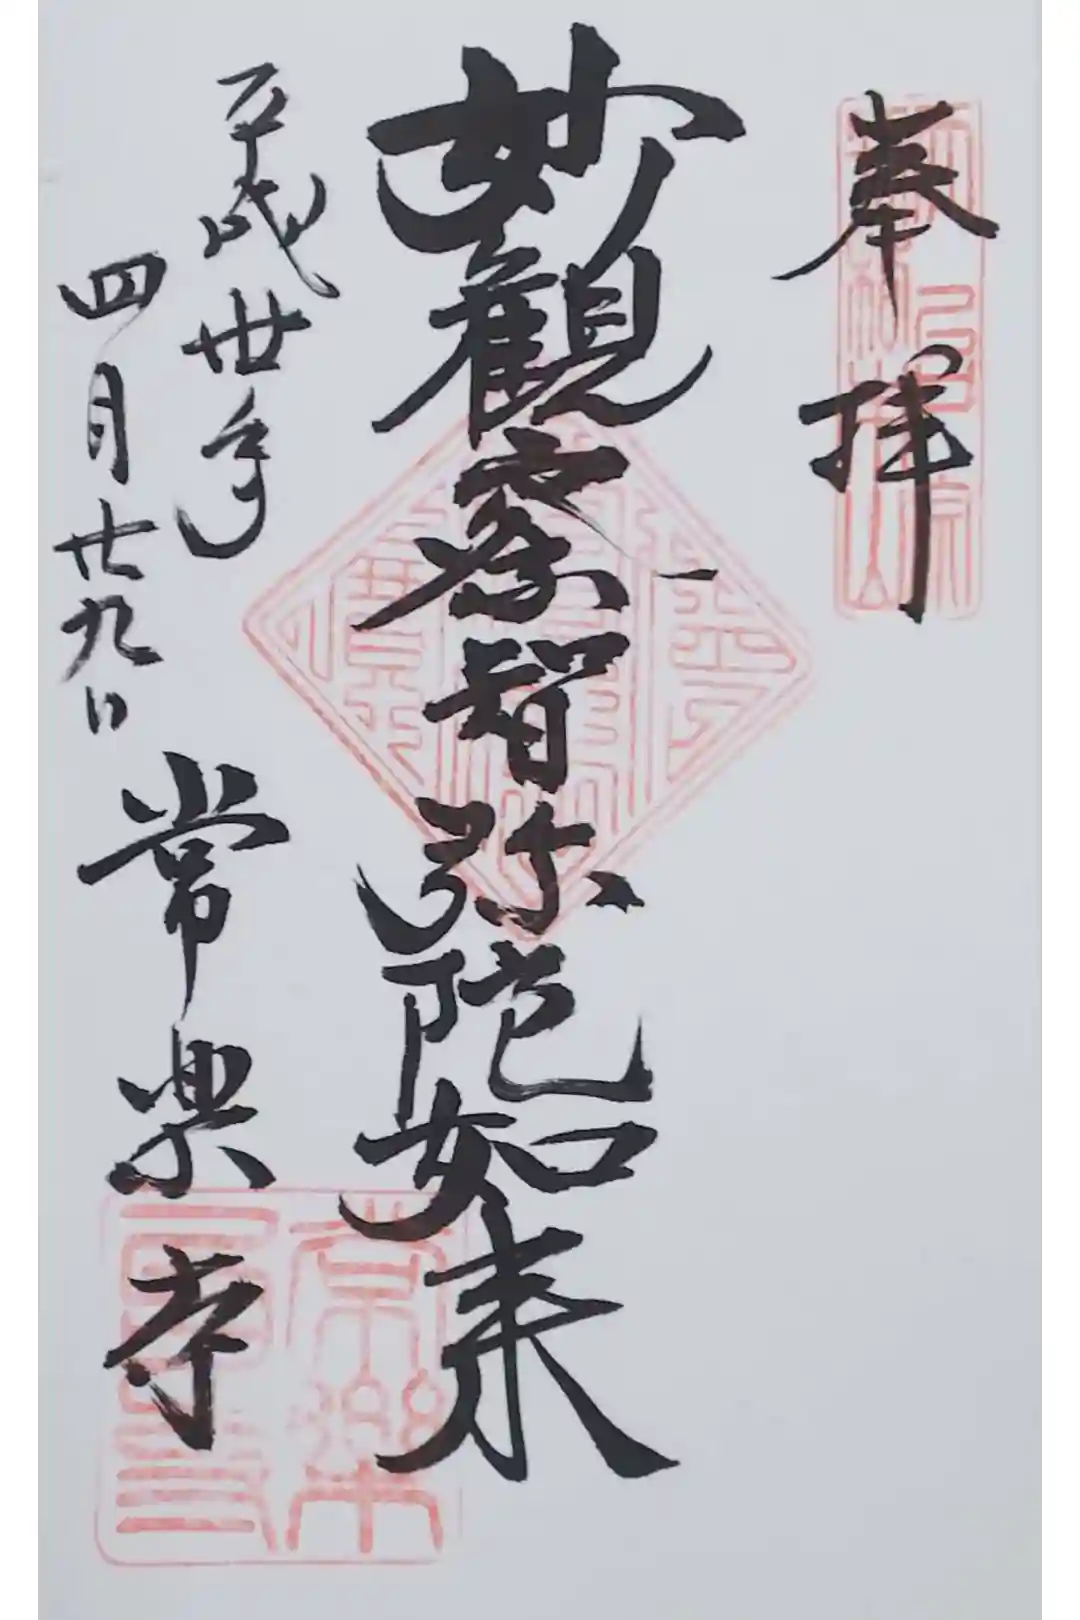 奉拝
妙觀察智弥陀如来
平成卅年
四月廿九日
常楽寺